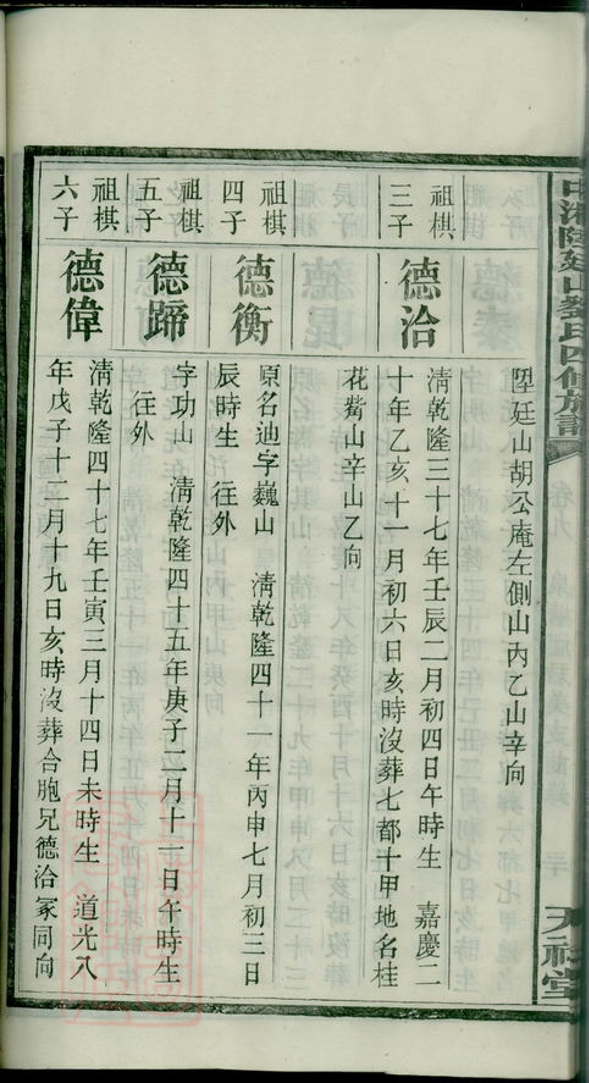 陞廷山胡公庵左側山內乙山辛向
祖棋
三子
德洽
清乾隆三十七年壬辰二月初四日午時生 嘉慶二
十年乙亥十一月初六日亥時沒葬七都十甲地名桂
花觜山辛山乙向
祖棋
四子
德衡
原名迪字巍山 清乾隆四十一年丙申七月初三日
辰時生 往外
祖棋
五子
德蹄
字功山 清乾隆四十五年庚子二月十一日午時生
往外
祖棋
六子
德偉
清乾隆四十七年壬寅三月十四日未時生 道光八
年戊子十二月十九日亥時沒葬合胞兄德洽冢同向